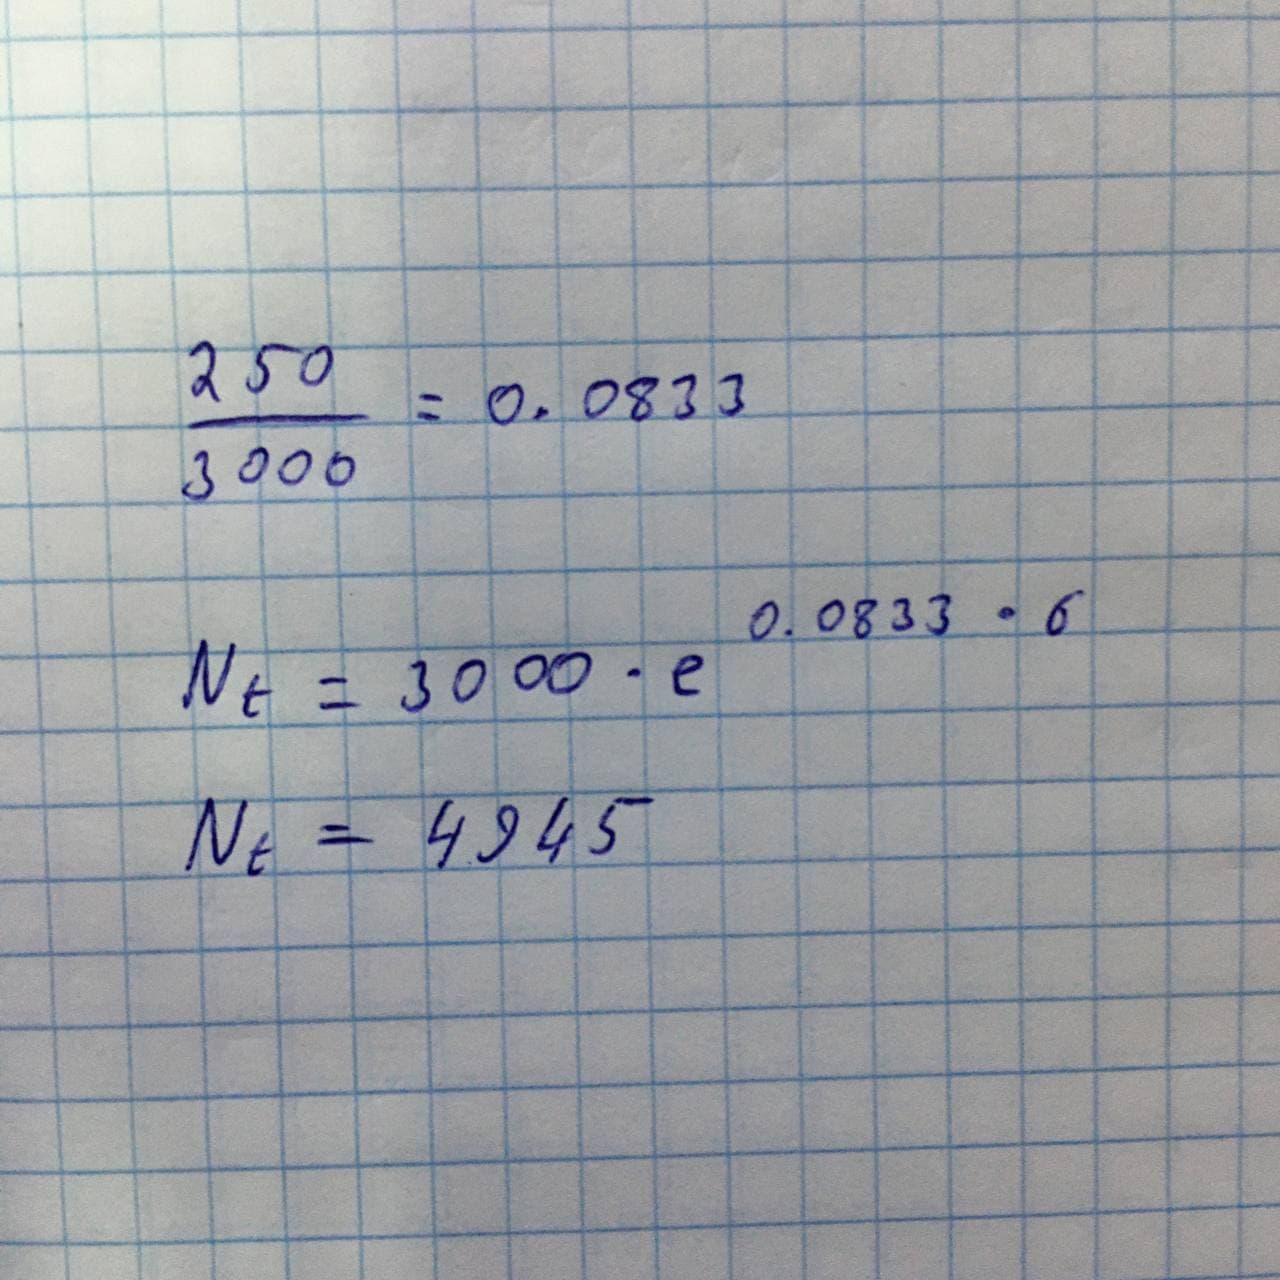 250
3000 = 0.0833
N_t = 3000 · e^0.0833 · 6
N_t = 4945